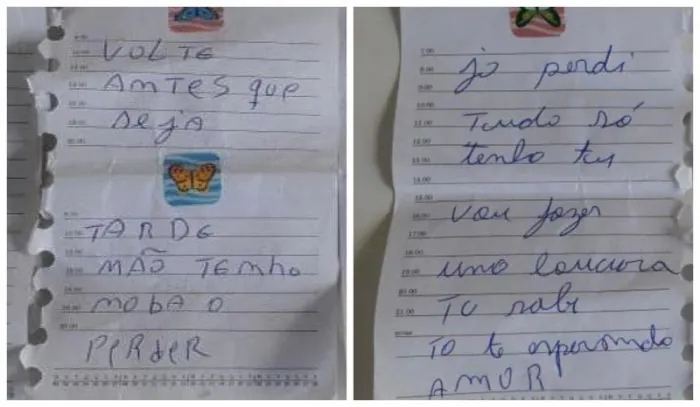 VOLTE
ANTES que
seja
TARDE
NÃO TEMho
moba o
PeRdeR
jo perdi
Tudo só
tenho tu
vou fazer
uno loucura
TU sabe
TO te esperondo
AMOR